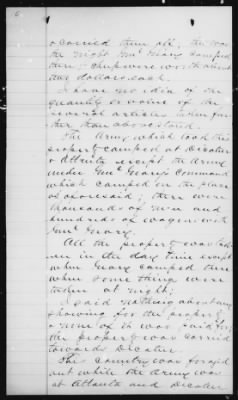 6
& carried them off, this was
the night Genl Geary camped
there. Sheep were worth about
two dollars each.
I have no idea of the
quantity or value of the
several articles taken fur
ther than above stated.
The Army which took this
property camped at Decatur
& Atlanta except the Army
under Genl Geary's command
which camped on the place
as aforesaid, there were
thousands of men and
hundreds of wagons with
Genl Geary.
All the property was tak
en in the day time except
when Geary camped there
when some things were
taken at night.
I said nothing about any
showing for the property
& none of it was paid for
the property was carried
towards Decatur.
The country was foraged
out while the army was
at Atlanta and Decatur